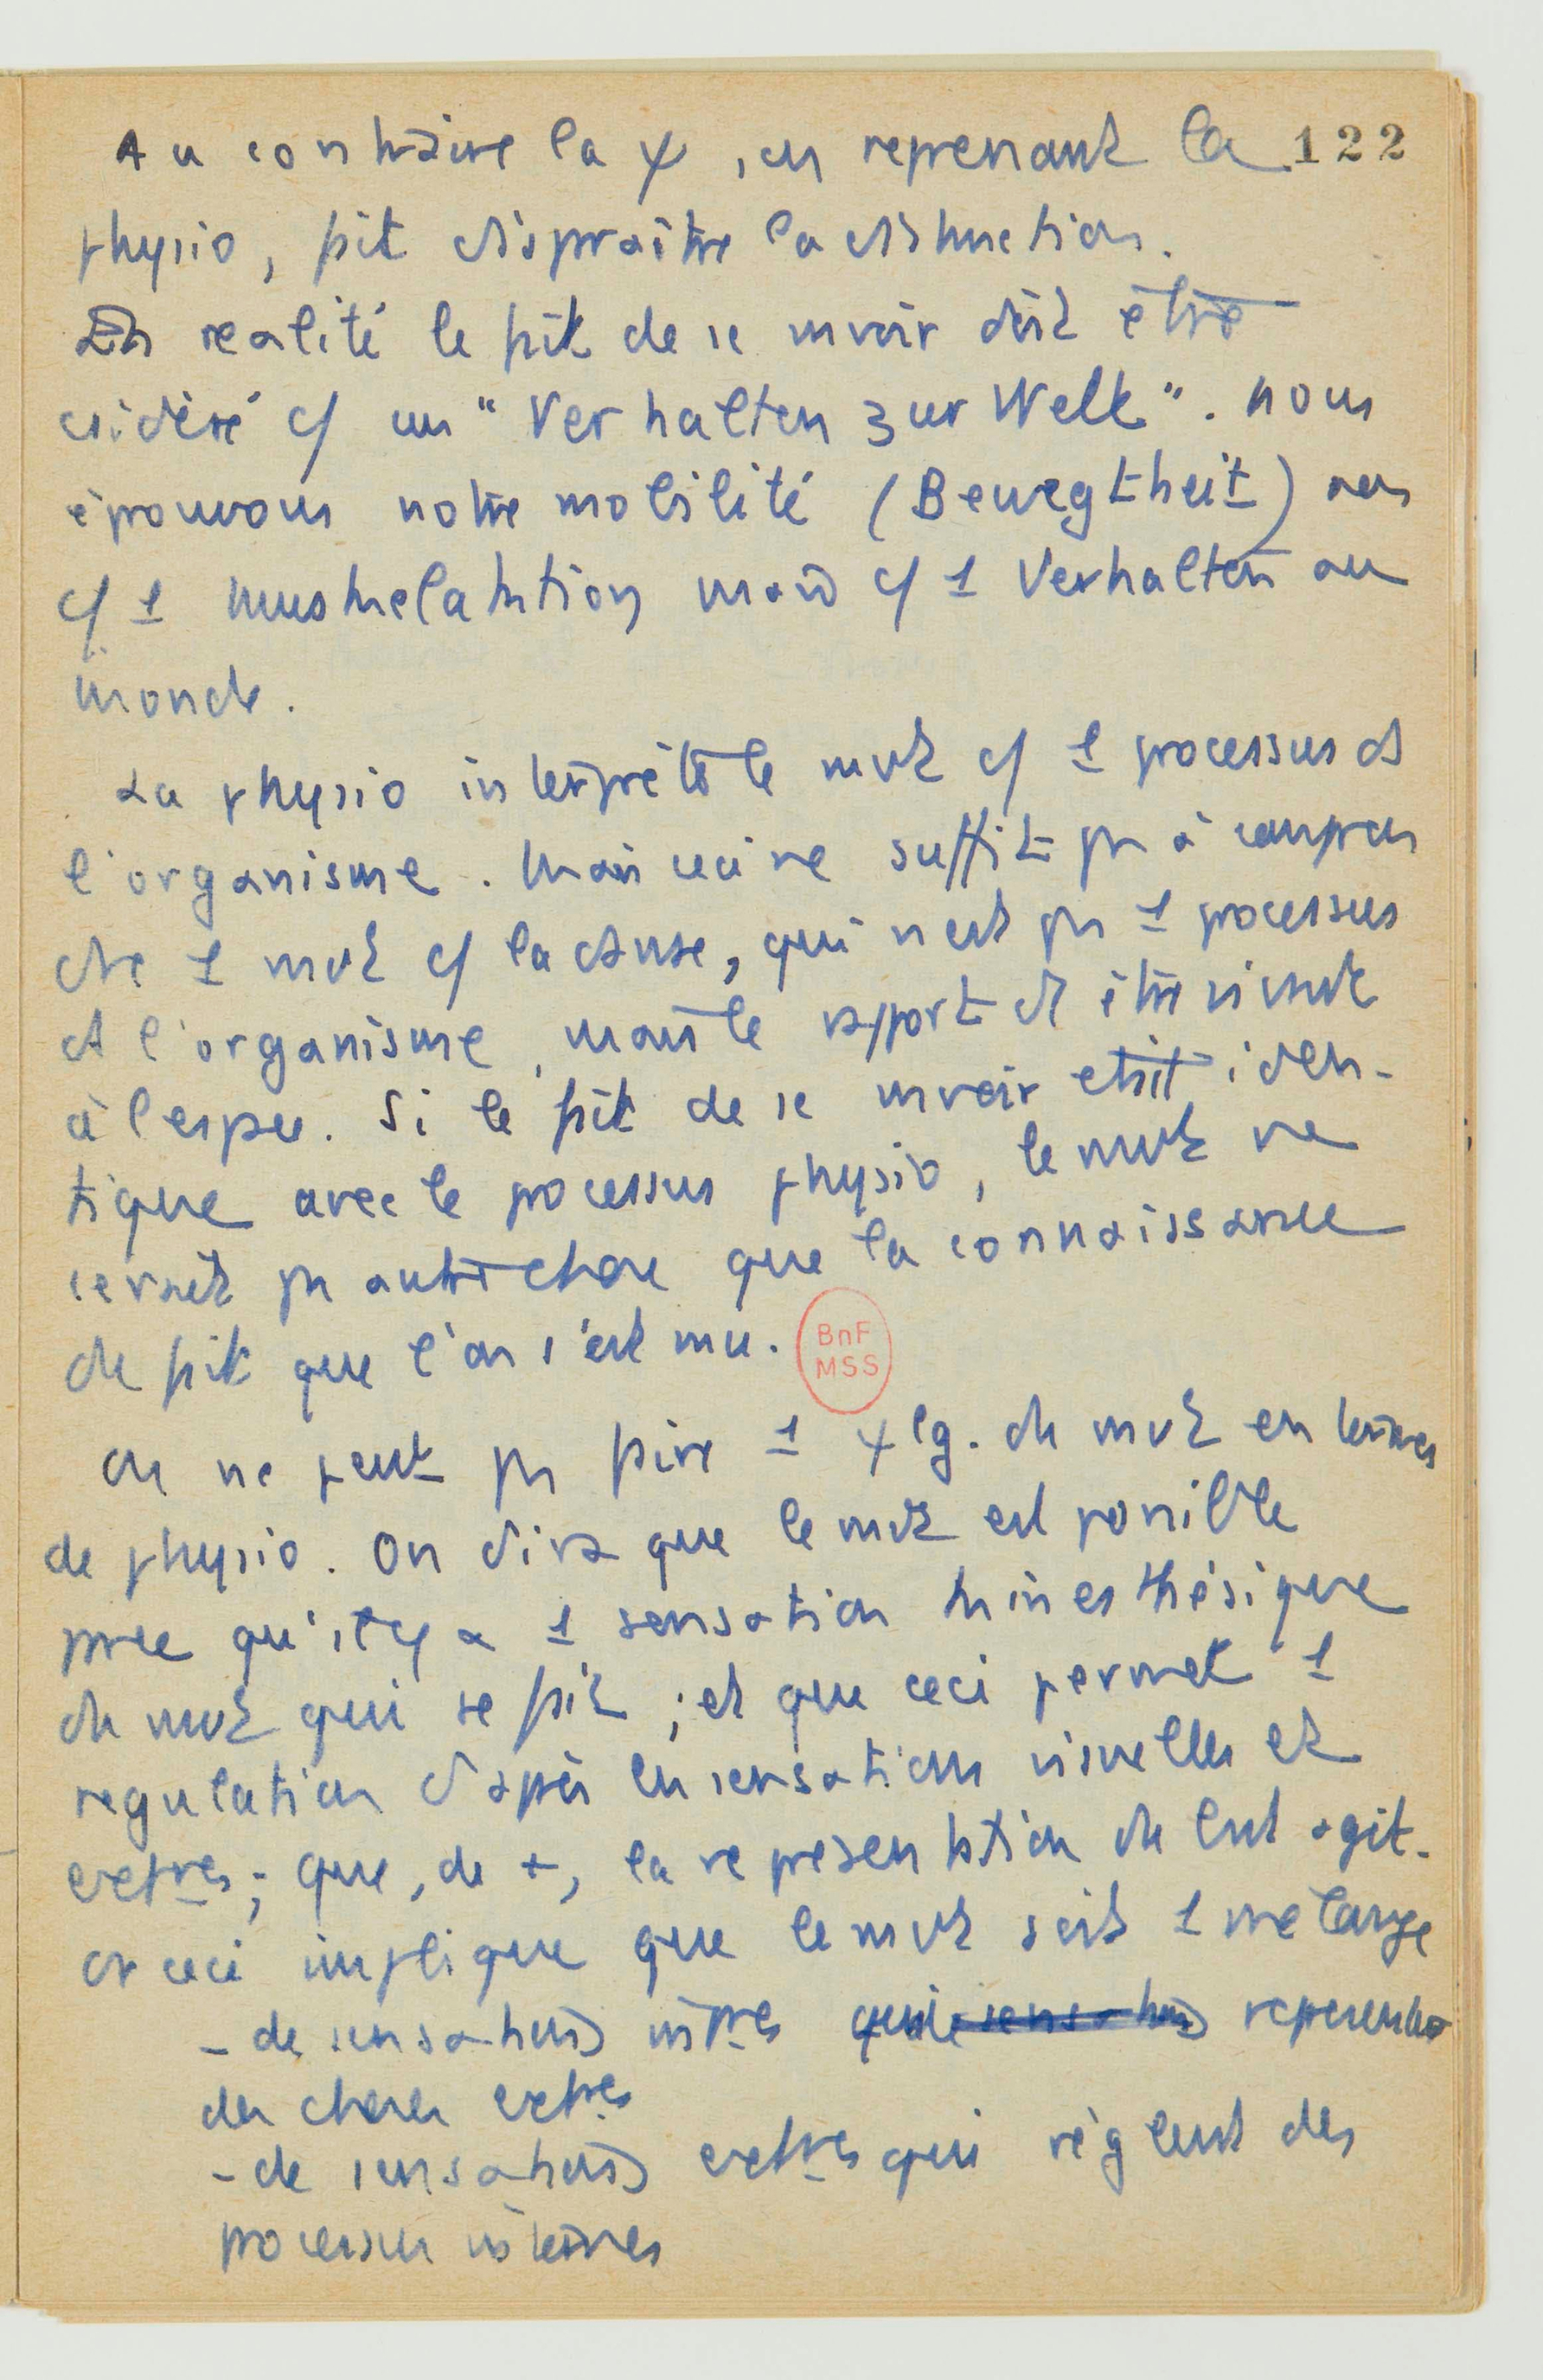 Au contraire la ψ, en reprenant la 122
physio, fait disparaître la distinction.
En realité le fait de se mvoir doit être
csidéré c/ un "Verhalten zur Welt". nous
éprouvons notre mobilité (Bewegtheit) non
c/ 1 mais c/ 1 Verhalten au
monde.
La physio interprète le mvt c/ 1 processus ds
l'organisme. Mais ceci ne suffit pas à compren
dre 1 mvt c/ la danse, qui n'est pas 1 processus
ds l'organisme, mais le rapport de être vivant
à l'espace. Si le fait de se mvoir etait iden-
tique avec le processus physio, le mvt ne
serait pas autre chose que la connaissance
du fait que l'on s'est mu.
BnF
MSS
On ne peut pas faire 1 ψlg. du mvt en termes
de physio. On dira que le mvt est possible
parce qu'il y a 1 sensation kinesthésique
du mvt qui se fait ; et que ceci permet 1
regulation d'après les sensations visuelles et
extnes ; que, de +, la representation du but agit.
or ceci implique que le mvt soit 1 melange
- de sensations intnes qui representent
des choses extnes
- de sensations extnes qui règlent des
processus internes